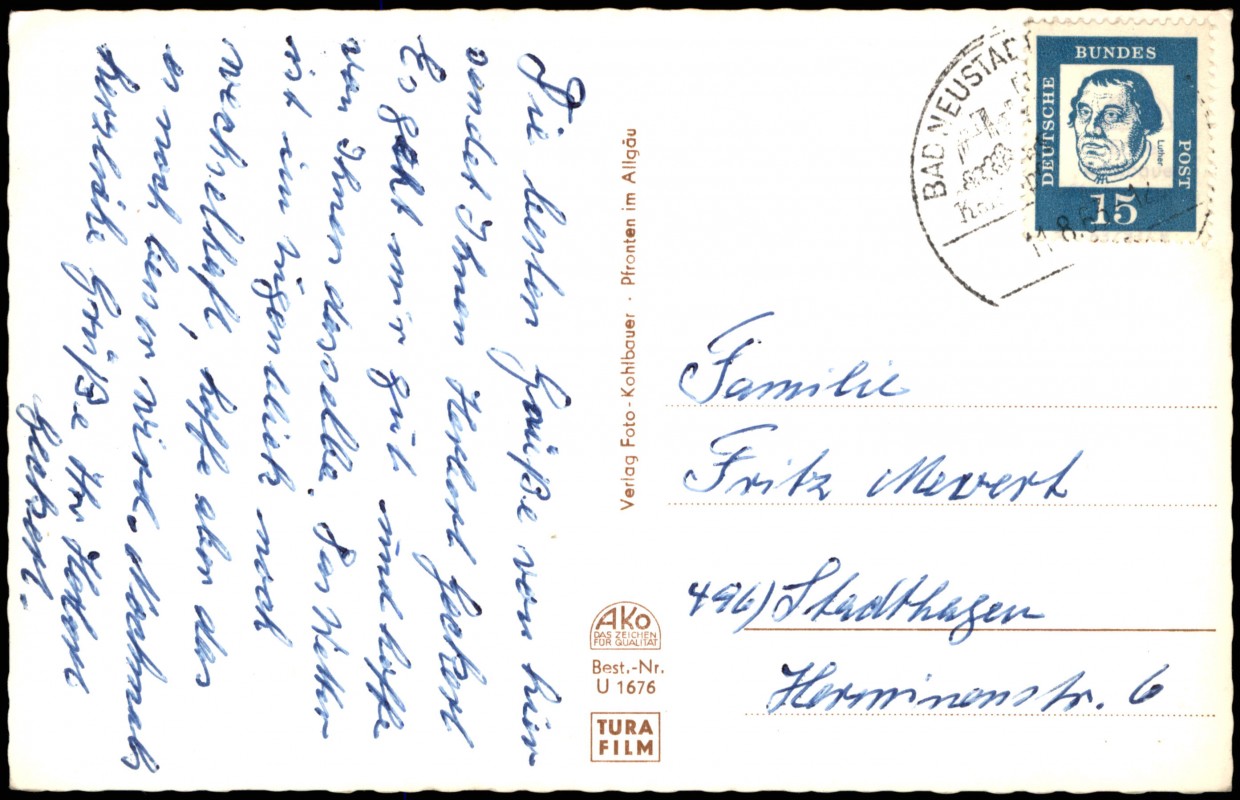 Die besten Grüße von hier
sendet Ihnen Herbert
Es geht mir gut und hoffe
von Ihnen dasselbe. Das Wetter
ist im Augenblick noch
wechselhaft, hoffe aber das
es noch besser wird. Nochmals
herzliche Grüße Ihr Herbert
Verlag Foto-Kohlbauer · Pfronten im Allgäu
AKO
DAS ZEICHEN
FÜR QUALITÄT
Best.-Nr.
U 1676
TURA
FILM
BAD NEUSTADT
11.8.6
DEUTSCHE
BUNDES
POST
Luther
15
Familie
Fritz Mevert
496) Stadthagen
Herminenstr. 6